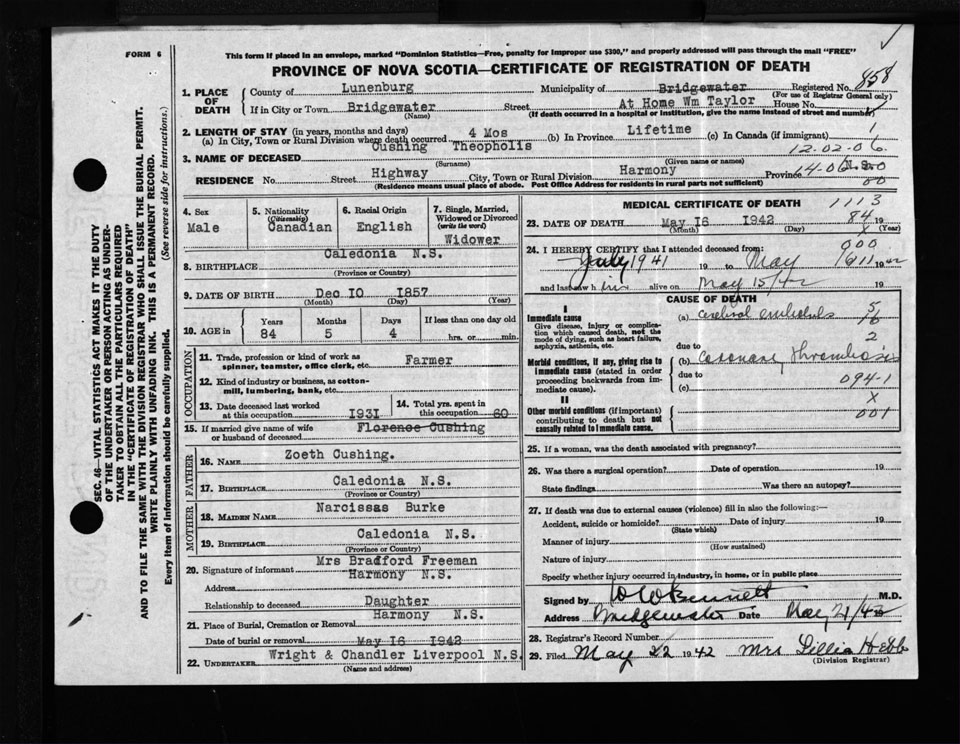 FORM 6
This form if placed in an envelope, marked "Dominion Statistics—Free, penalty for improper use $300," and properly addressed will pass through the mail "FREE"
PROVINCE OF NOVA SCOTIA—CERTIFICATE OF REGISTRATION OF DEATH
SEC. 46—VITAL STATISTICS ACT MAKES IT THE DUTY
OF THE UNDERTAKER OR PERSON ACTING AS UNDER-
TAKER TO OBTAIN ALL THE PARTICULARS REQUIRED
IN THE "CERTIFICATE OF REGISTRATION OF DEATH"
AND TO FILE THE SAME WITH THE DIVISION REGISTRAR WHO SHALL ISSUE THE BURIAL PERMIT.
WRITE PLAINLY WITH UNFADING INK. THIS IS A PERMANENT RECORD.
Every item of information should be carefully supplied. (See reverse side for instructions.)
1. PLACE OF DEATH
County of Lunenburg Municipality of Bridgewater Registered No. 858
(For use of Registrar General only)
If in City or Town Bridgewater Street At Home Wm Taylor House No.
(Name) (If death occurred in a hospital or institution, give the name instead of street and number)
2. LENGTH OF STAY (in years, months and days)
(a) In City, Town or Rural Division where death occurred 4 Mos (b) In Province Lifetime (c) In Canada (if immigrant) 1
3. NAME OF DECEASED Cushing Theopholis 12-02-06.
(Surname) (Given name or names)
RESIDENCE No. Street Highway City, Town or Rural Division Harmony Province N.S.
(Residence means usual place of abode. Post Office Address for residents in rural parts not sufficient) 00
4. Sex
Male
5. Nationality
(Citizenship)
Canadian
6. Racial Origin
English
7. Single, Married,
Widowed or Divorced
(write the word)
Widower
8. BIRTHPLACE Caledonia N.S.
(Province or Country)
9. DATE OF BIRTH Dec 10 1857
(Month) (Day) (Year)
10. AGE in Years Months Days If less than one day old
84 5 4 hrs. or min.
OCCUPATION
11. Trade, profession or kind of work as
spinner, teamster, office clerk, etc. Farmer
12. Kind of industry or business, as cotton-
mill, lumbering, bank, etc.
13. Date deceased last worked
at this occupation 1931
14. Total yrs. spent in
this occupation 60
15. If married give name of wife
or husband of deceased Florence Cushing
FATHER
16. NAME Zoeth Cushing.
17. BIRTHPLACE Caledonia N.S.
(Province or Country)
MOTHER
18. MAIDEN NAME Narcissas Burke
19. BIRTHPLACE Caledonia N.S.
(Province or Country)
20. Signature of informant Mrs Bradford Freeman
Address Harmony N.S.
Relationship to deceased Daughter
21. Place of Burial, Cremation or Removal Harmony N.S.
Date of burial or removal May 16 1942
22. UNDERTAKER Wright & Chandler Liverpool N.S.
(Name and address)
MEDICAL CERTIFICATE OF DEATH 1113
84
23. DATE OF DEATH May 16 1942 19
(Month) (Day) (Year)
24. I HEREBY CERTIFY that I attended deceased from: 000
July 1941 19 to May 16 1942
and last saw him alive on May 15/42
CAUSE OF DEATH
I
Immediate cause
Give disease, injury or complica-
tion which caused death, not the
mode of dying, such as heart failure,
asphyxia, asthenia, etc.
(a) Cerebral embolus
2
due to
Morbid conditions, if any, giving rise to
immediate cause (stated in order
proceeding backwards from im-
mediate cause).
(b) Coronary thrombosis
due to 094-1
(c)
II
Other morbid conditions (if important)
contributing to death but not
causally related to immediate cause.
X
001
25. If a woman, was the death associated with pregnancy?
26. Was there a surgical operation? Date of operation 19
State findings Was there an autopsy?
27. If death was due to external causes (violence) fill in also the following:—
Accident, suicide or homicide? Date of injury 19
(State which)
Manner of injury
(How sustained)
Nature of injury
Specify whether injury occurred in industry, in home, or in public place
Signed by W W Bennett M.D.
Address Bridgewater Date May 21/42
28. Registrar's Record Number
29. Filed May 22 1942 Mrs Lillia Hebb
(Division Registrar)